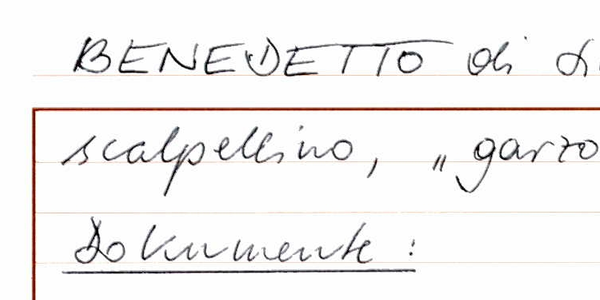 BENEDETTO di
scalpellino, „garzo
Dokumente: